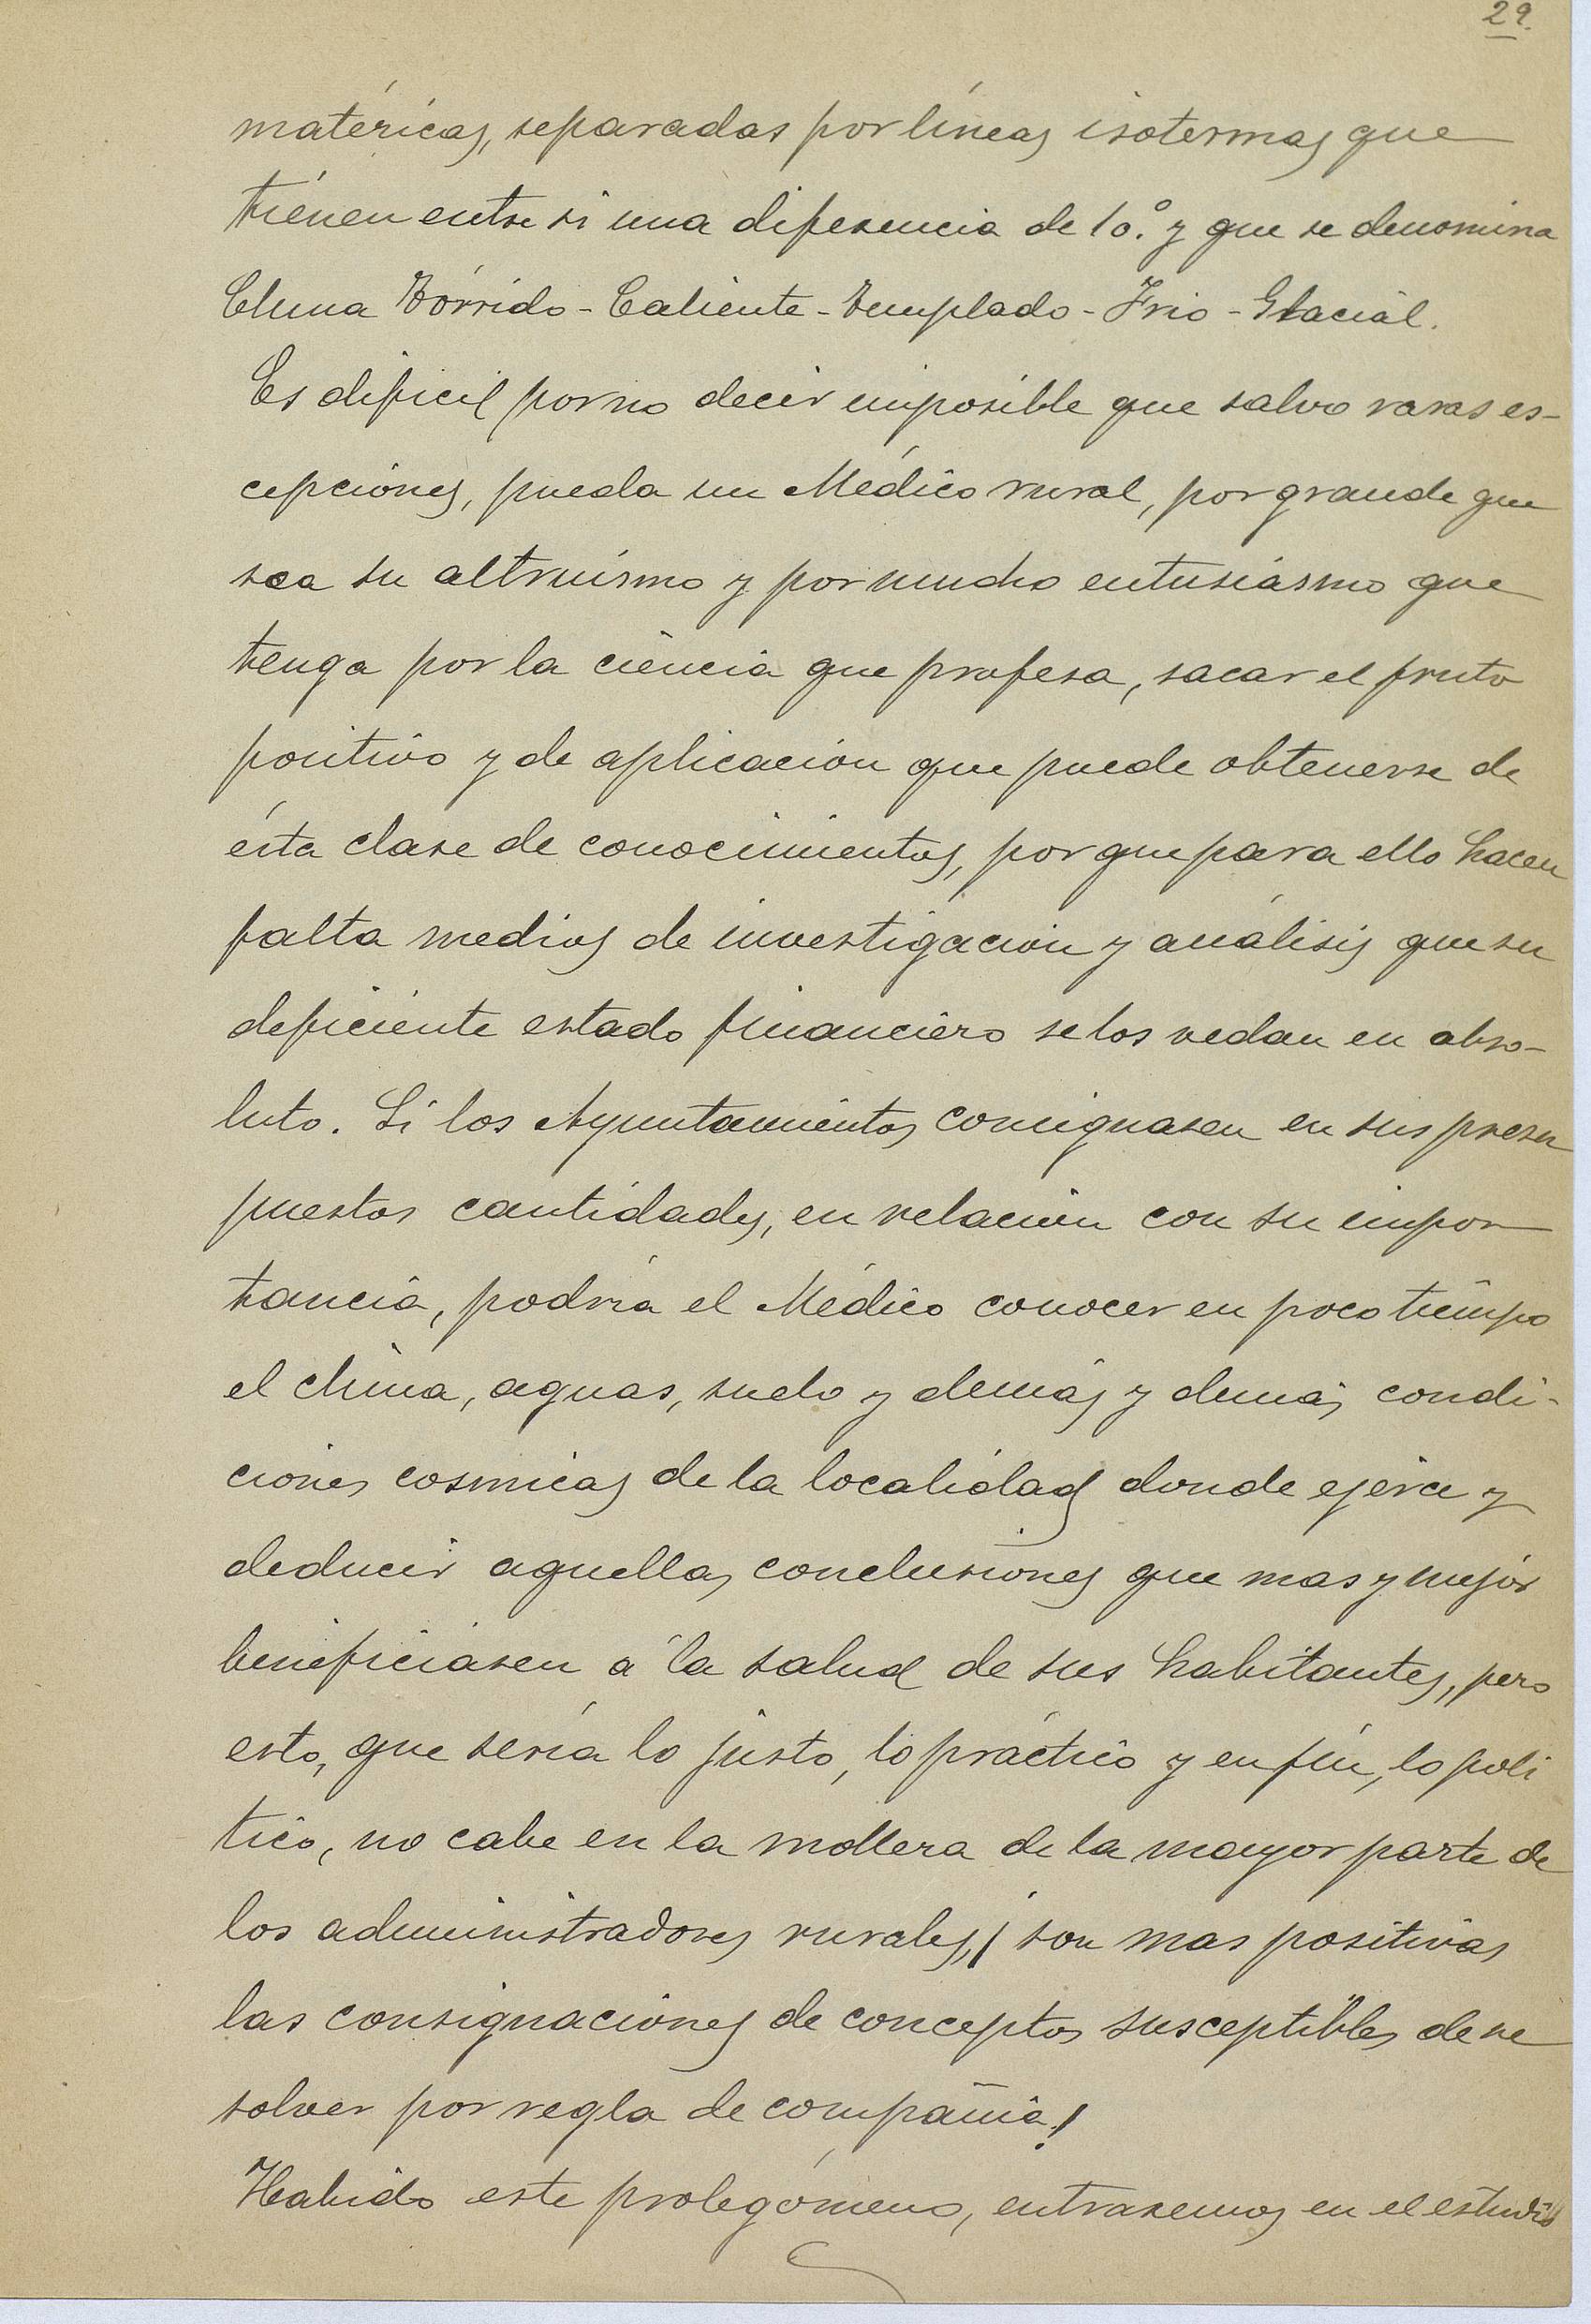 29.
matéricas, separadas por líneas isotermas que
tienen entre si una diferencia de 10.° y que se denomina
Clima Tórrido - Caliente - Templado - Frio - Glacial.
Es dificil por no decir imposible que salvo raras es-
cepciones, pueda un Médico rural, por grande que
sea su altruismo y por mucho entusiasmo que
tenga por la ciencia que profesa, sacar el fruto
positivo y de aplicación que puede obtenerse de
ésta clase de conocimientos, por que para ello hacen
falta medios de investigación y análisis que su
deficiente estado financiero se los vedan en abso-
luto. Si los Ayuntamientos consignasen en sus presu
puestos cantidades, en relación con su impor
tancia, podria el Médico conocer en poco tiempo
el clima, aguas, suelo y demás y demás condi-
ciones cosmicas de la localidad donde ejerce y
deducir aquellas conclusiones que mas y mejor
beneficiasen á la salud de sus habitantes, pero
esto, que sería lo justo, lo práctico y en fin, lo poli
tico, no cabe en la mollera de la mayor parte de
los administradores rurales, ¡son mas positivas
las consignaciones de conceptos susceptibles de re
solver por regla de compañia!
Habido este prolegómeno, entraremos en el estudio